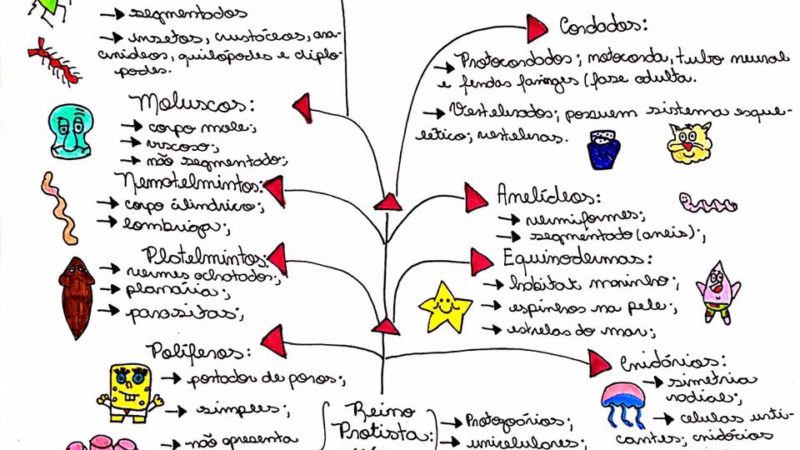 → segmentados
→ insetos, crustáceos, ara-
cnídeos, quilópodes e diplo-
podes.
Moluscos:
→ corpo mole;
→ viscoso;
→ não segmentado;
Nematelmintos:
→ corpo cilíndrico;
→ lombriga;
Platelmintos:
→ vermes achatados;
→ planária;
→ parasitas;
Poríferos:
→ portador de poros;
→ simples;
→ não apresenta
Cordados:
→ Protocordados; notocorda, tubo neural
e fendas faringes (fase adulta.
→ Vertebrados; possuem sistema esque-
lético; vertebras.
Anelídeos:
→ vermiformes;
→ segmentado (aneis);
Equinodermas:
→ habitat marinho;
→ espinhos na pele;
→ estrelas do mar;
Cnidários:
→ simetria
radial;
→ celulas urti-
cantes; cnidócios
Reino
Protista:
→ Protozoários;
→ unicelulares;